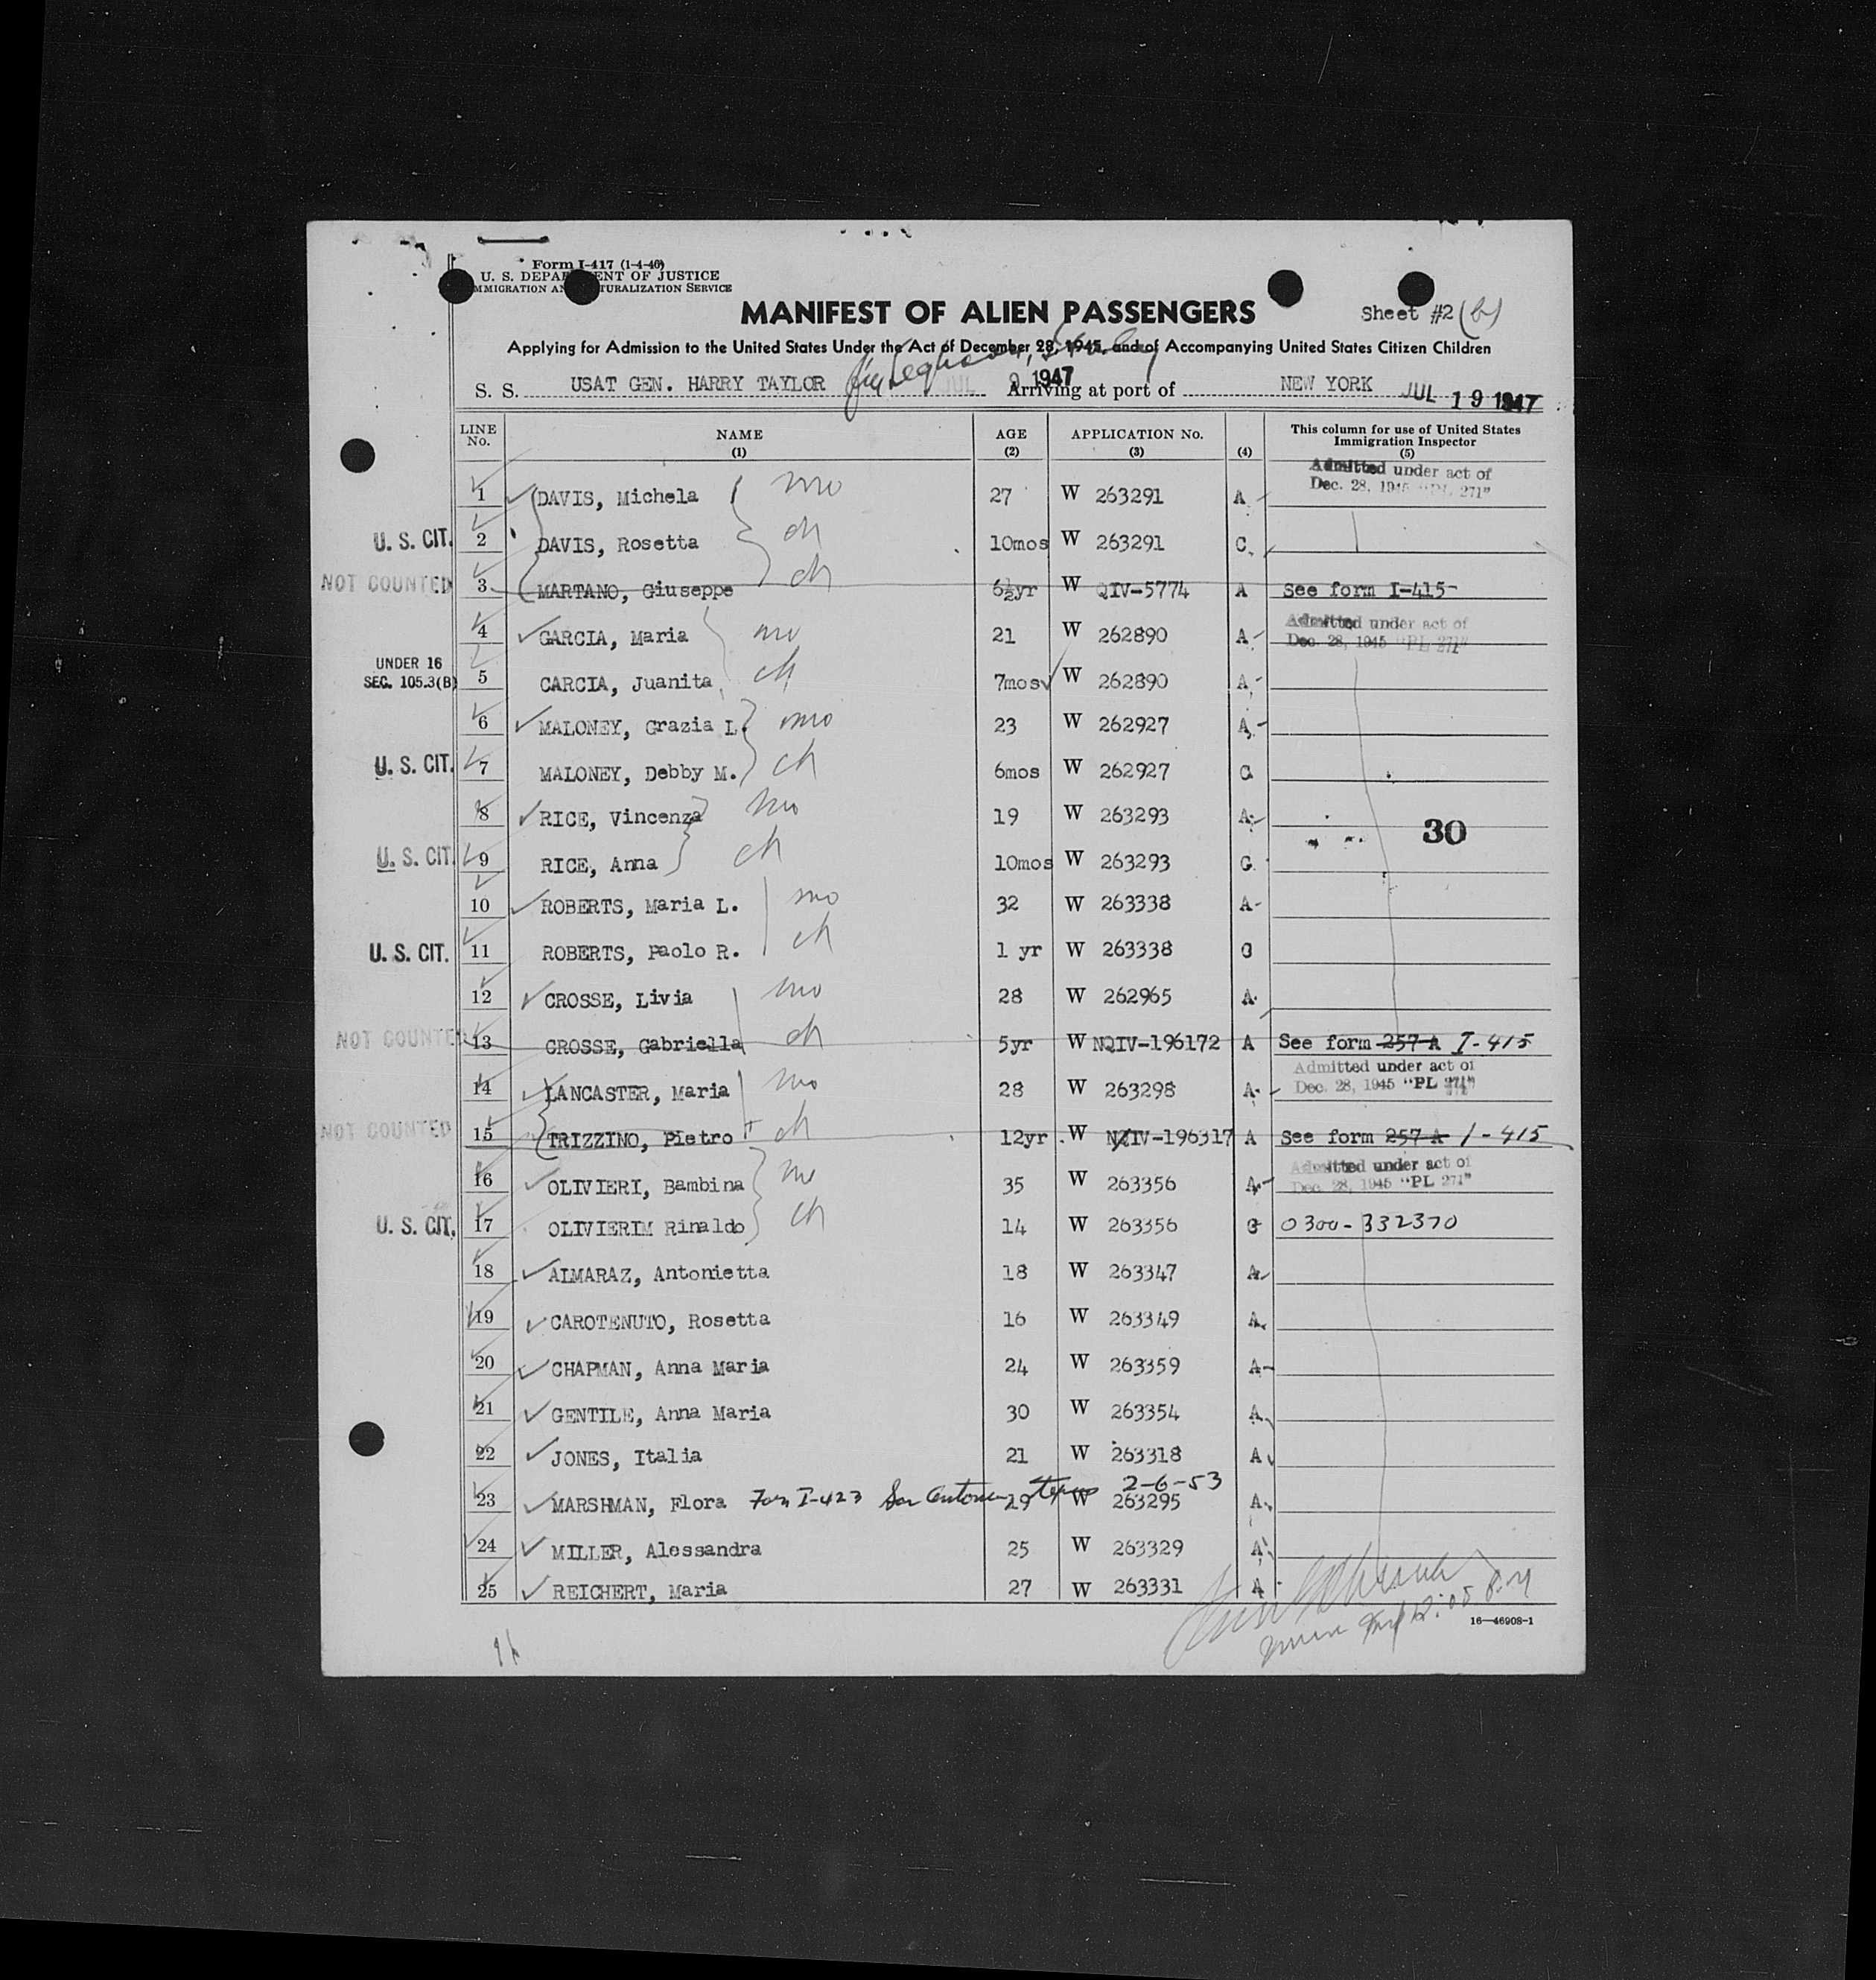 Form I-417 (1-4-46)
U. S. DEPARTMENT OF JUSTICE
IMMIGRATION AND NATURALIZATION SERVICE
MANIFEST OF ALIEN PASSENGERS
Sheet #2 (b)
Applying for Admission to the United States Under the Act of December 28, 1945, and of Accompanying United States Citizen Children
S. S. USAT GEN. HARRY TAYLOR JUL 9 1947 Arriving at port of NEW YORK JUL 19 1947
LINE No. NAME (1) AGE (2) APPLICATION No. (3) (4) This column for use of United States Immigration Inspector (5)
Admitted under act of
Dec. 28, 1945 "PL 271"
1 DAVIS, Michela mo 27 W 263291 A
U. S. CIT. 2 DAVIS, Rosetta ch 10mos W 263291 C
NOT COUNTED 3 MARTANO, Giuseppe ch 6½yr W QIV-5774 A See form I-415
Admitted under act of
4 GARCIA, Maria mo 21 W 262890 A Dec. 28, 1945 "PL 271"
UNDER 16
SEC. 105.3(B) 5 CARCIA, Juanita ch 7mos W 262890 A
6 MALONEY, Grazia L. mo 23 W 262927 A
U. S. CIT. 7 MALONEY, Debby M. ch 6mos W 262927 C
8 RICE, Vincenza mo 19 W 263293 A
30
U. S. CIT. 9 RICE, Anna ch 10mos W 263293 C
10 ROBERTS, Maria L. mo 32 W 263338 A
U. S. CIT. 11 ROBERTS, Paolo R. ch 1 yr W 263338 C
12 CROSSE, Livia mo 28 W 262965 A
NOT COUNTED 13 CROSSE, Gabriella ch 5yr W NQIV-196172 A See form 257-A I-415
Admitted under act of
14 LANCASTER, Maria mo 28 W 263298 A Dec. 28, 1945 "PL 271"
NOT COUNTED 15 TRIZZINO, Pietro ch 12yr W NQIV-196317 A See form 257-A I-415
Admitted under act of
16 OLIVIERI, Bambina mo 35 W 263356 A Dec. 28, 1945 "PL 271"
U. S. CIT. 17 OLIVIERIM Rinaldo ch 14 W 263356 C 0300-332370
18 ALMARAZ, Antonietta 18 W 263347 A
19 CAROTENUTO, Rosetta 16 W 263349 A
20 CHAPMAN, Anna Maria 24 W 263359 A
21 GENTILE, Anna Maria 30 W 263354 A
22 JONES, Italia 21 W 263318 A
23 MARSHMAN, Flora For I-423 San Antonio Texas 2-6-53 29 W 263295 A
24 MILLER, Alessandra 25 W 263329 A
25 REICHERT, Maria 27 W 263331 A
16—46908-1